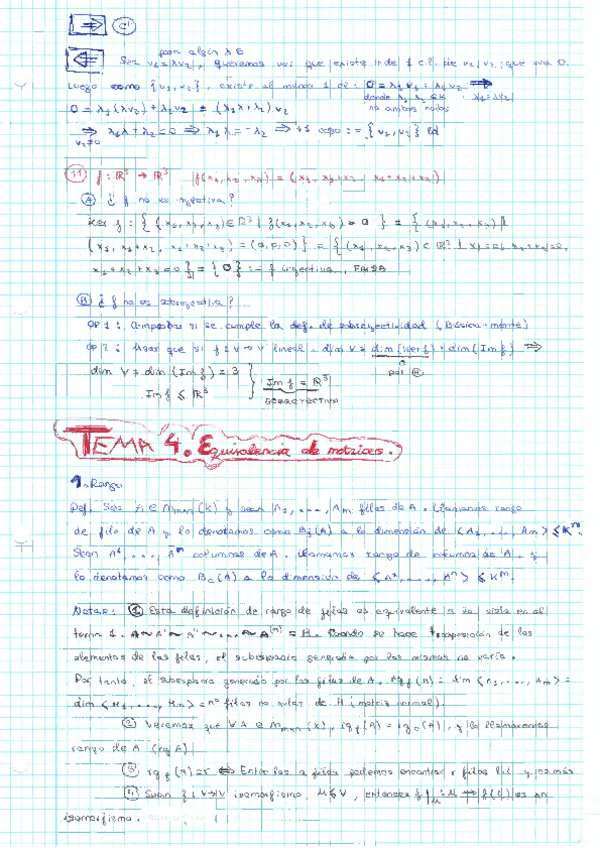 ⇒ cl
para algún λ ∈
⇐ Sea v₁ = λv₂, queremos ver que existe 1 de cl de v₁, v₂, que sea 0.
Luego como {v₁, v₂}, existe al menos 1 cl: 0 = λ₁v₁ + λ₂v₂ ⇒
donde λ₁, λ₂ ∈ K v₁ = λv₂
no ambos nulos
0 = λ₁(λv₂) + λ₂v₂ = (λ₁λ + λ₂)v₂
⇒ λ₁λ + λ₂ = 0 ⇒ λ₁λ = -λ₂ ⇒ {v₁, v₂} ld
v₂≠0
11 f: ℝ³ → ℝ³ f(x₁, x₂, x₃) = (x₁, x₁+x₂, x₁+x₂+x₃)
A ¿f no es inyectiva?
Ker f = {(x₁, x₂, x₃) ∈ ℝ³ | f(x₁, x₂, x₃) = 0} = {(x₁, x₂, x₃) |
(x₁, x₁+x₂, x₁+x₂+x₃) = (0, 0, 0)} = {(x₁, x₂, x₃) ∈ ℝ³ | x₁=0, x₁+x₂=0,
x₁+x₂+x₃=0} = {0} f inyectiva, FALSA
B ¿f no es sobreyectiva?
OP 1: si se cumple la def. de sobreyectividad
OP 2: Usar que si f: V → V lineal dim V = dim(Ker f) + dim(Im f) ⇒
0
por A
dim V = dim(Im f) = 3
Im f ≤ ℝ³
Im f = ℝ³
SOBREYECTIVA
TEMA 4. Equivalencia de matrices.
1. Rango
Def. Sea A ∈ Mmxn(K) y sean A₁, ..., Am filas de A. Llamamos rango
de filas de A y lo denotamos como a la dimensión de <A₁, ..., Am> ≤ Kⁿ.
Sean A¹, ..., Aⁿ columnas de A. Llamamos rango de columna de A, y
lo denotamos como a la dimensión de <A¹, ..., Aⁿ> ≤ Kᵐ.
Notas: 1 Esta definición de rango de filas es equivalente a la vista en el
tema 1. A ~ A' ~ A'' ~ ... ~ A⁽ⁿ⁾ = H. Cuando se hace transposición de los
elementos de las filas, el subespacio generado por las mismas no varía.
Por tanto, el subespacio generado por las filas de A, rg f(A) = dim <A₁, ..., Am> =
dim <H₁, ..., Hm> = nº filas no nulas de H (matriz normal).
2 Veremos que ∀A ∈ Mmxn(K), rg f(A) = rg c(A), y lo llamaremos
rango de A (rg A)
3 rg f(A) = r ⇔ Entre las filas podemos encontrar r filas li y no más
4 Sean f: V→V isomorfismo, U ≤ V, entonces f|U: U → f(U) es un
isomorfismo.